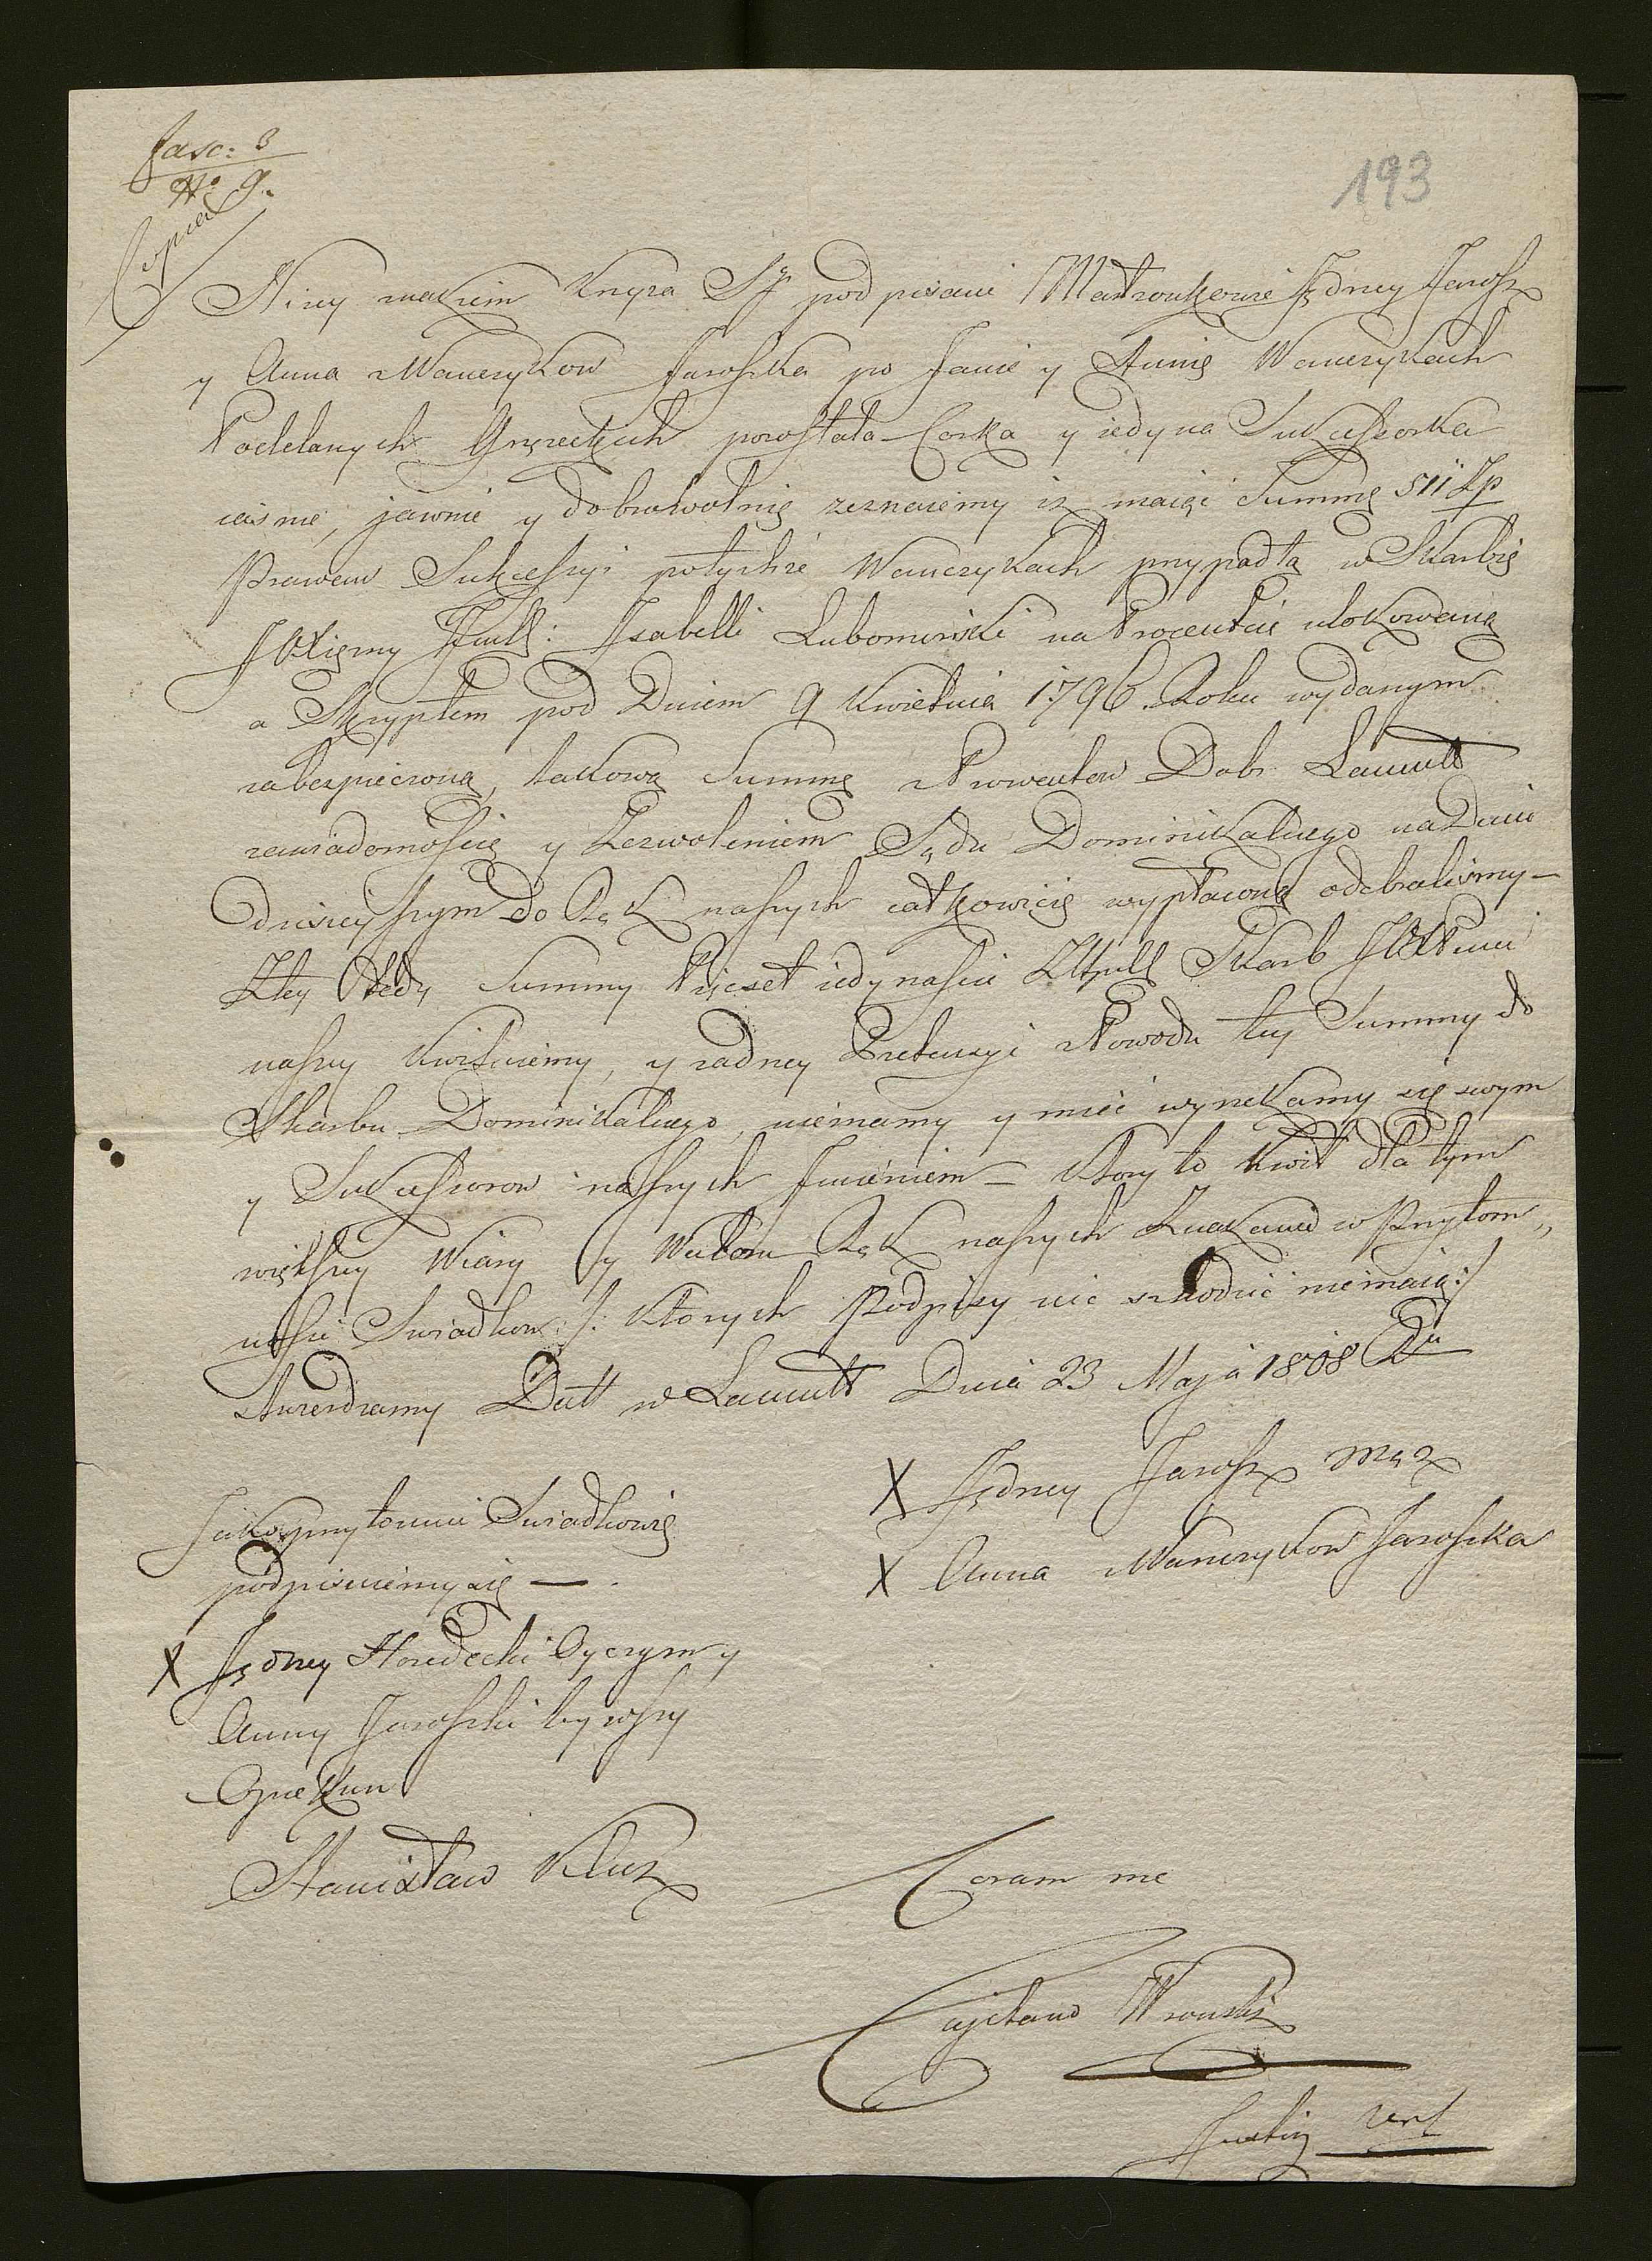 fasc: 3
No 9.
193
Copia
Niżey znakiem Krzyża S. podpisani Małżonkowie Jędrzey Jarosz
y Anna z Wanczykow Jaroszka po Janie y Annie Wanczykach
Poddanych pozostała Corka y iedyna Sukcessorka
iasnie, jawnie y dobrowolnie zeznaiemy iż maiąc Summę 511 Zp
Prawem Sukcessyi po tychże Wanczykach przypadłą w Skarbie
JO Xiężny Jmći: Isabelli Lubomirski na Procentcie ulokowaną
a Skryptem pod Dniem 9 Kwietnia 1796 Roku wydanym
zabezpieczoną, takową Summę z Prowentow Dobr Lancutt
zawiadomością y Zezwoleniem Sądu Dominikalnego na Dniu
dzisieyszym do Rąk naszych całkowicie wypłaconą odebralismy –
Z tey tedy Summy Pięćset iedynascie Skarb
naszy kwituiemy, y żadney Pretensyi z Powodu tey Summy do
Skarbu Dominikalnego, niemamy y mieć wyrzekamy się swym
y Sukcessorow naszych Jmieniem – Ktory to kwit dla tym
większey Wiary y Waloru Rąk naszych Znakami w Przytom„
nosci Swiadkow /: ktorych Podpisy nic szkodzić nie maią :/
stwierdzamy Datt w Lancutt Dnia 23 Maja 1808
X Jędrzey Jarosz mąż
X Anna z Wanczykow Jaroszka
Jako przytomni Swiadkowie
podpisuiemy się —
X Jędrzey Horedecki Oyczym y
Anny Jaroszki bywszy
Opiekun
Stanisław Kluz
Coram me
Cajetano Wronski
Justiz